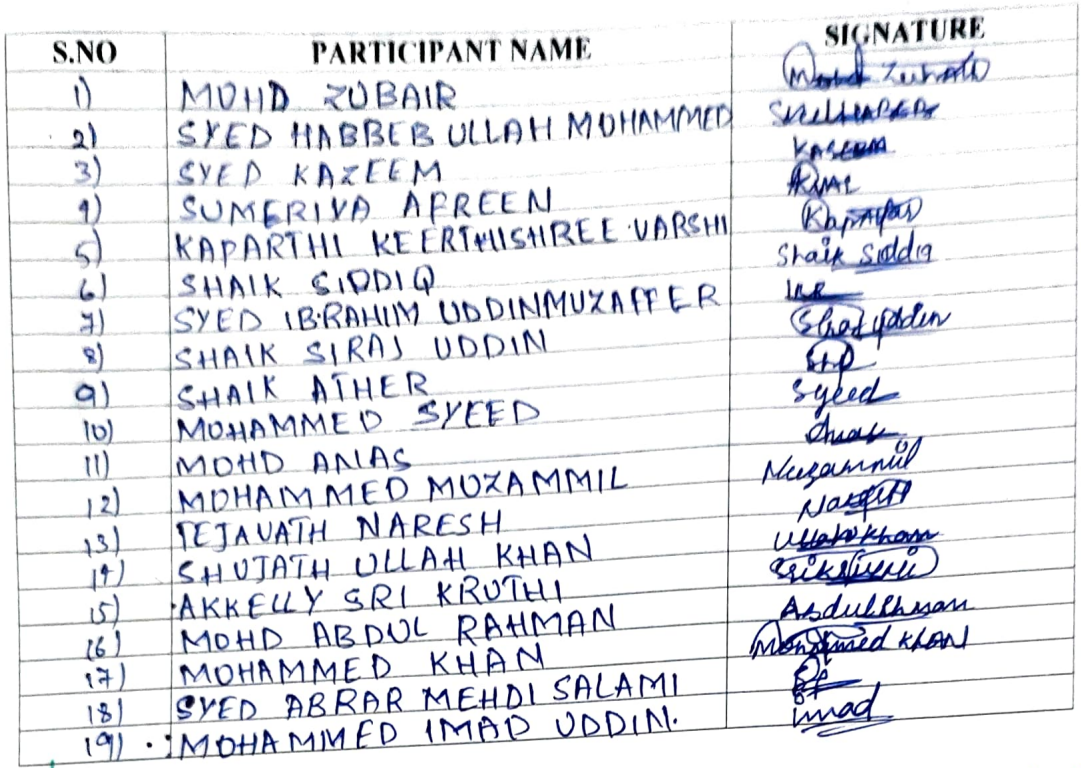 S.NO PARTICIPANT NAME SIGNATURE
1) MOHD ZUBAIR Mohd Zubair
2) SYED HABBEB ULLAH MOHAMMED
3) SYED KAZEEM KASEEM
4) SUMERIYA AFREEN
5) KAPARTHI KEERTHISHREE VARSHI
6) SHAIK SIDDIQ Shaik Siddiq
7) SYED IBRAHIM UDDINMUZAFFER
8) SHAIK SIRAJ UDDIN
9) SHAIK ATHER
10) MOHAMMED SYEED Syeed
11) MOHD ANAS
12) MOHAMMED MUZAMMIL Muzammil
13) TEJAVATH NARESH
14) SHUJATH ULLAH KHAN Ullah Khan
15) AKKELLY SRI KRUTHI
16) MOHD ABDUL RAHMAN
17) MOHAMMED KHAN Mohammed KHAN
18) SYED ABRAR MEHDI SALAMI
19) MOHAMMED IMAD UDDIN. Imad